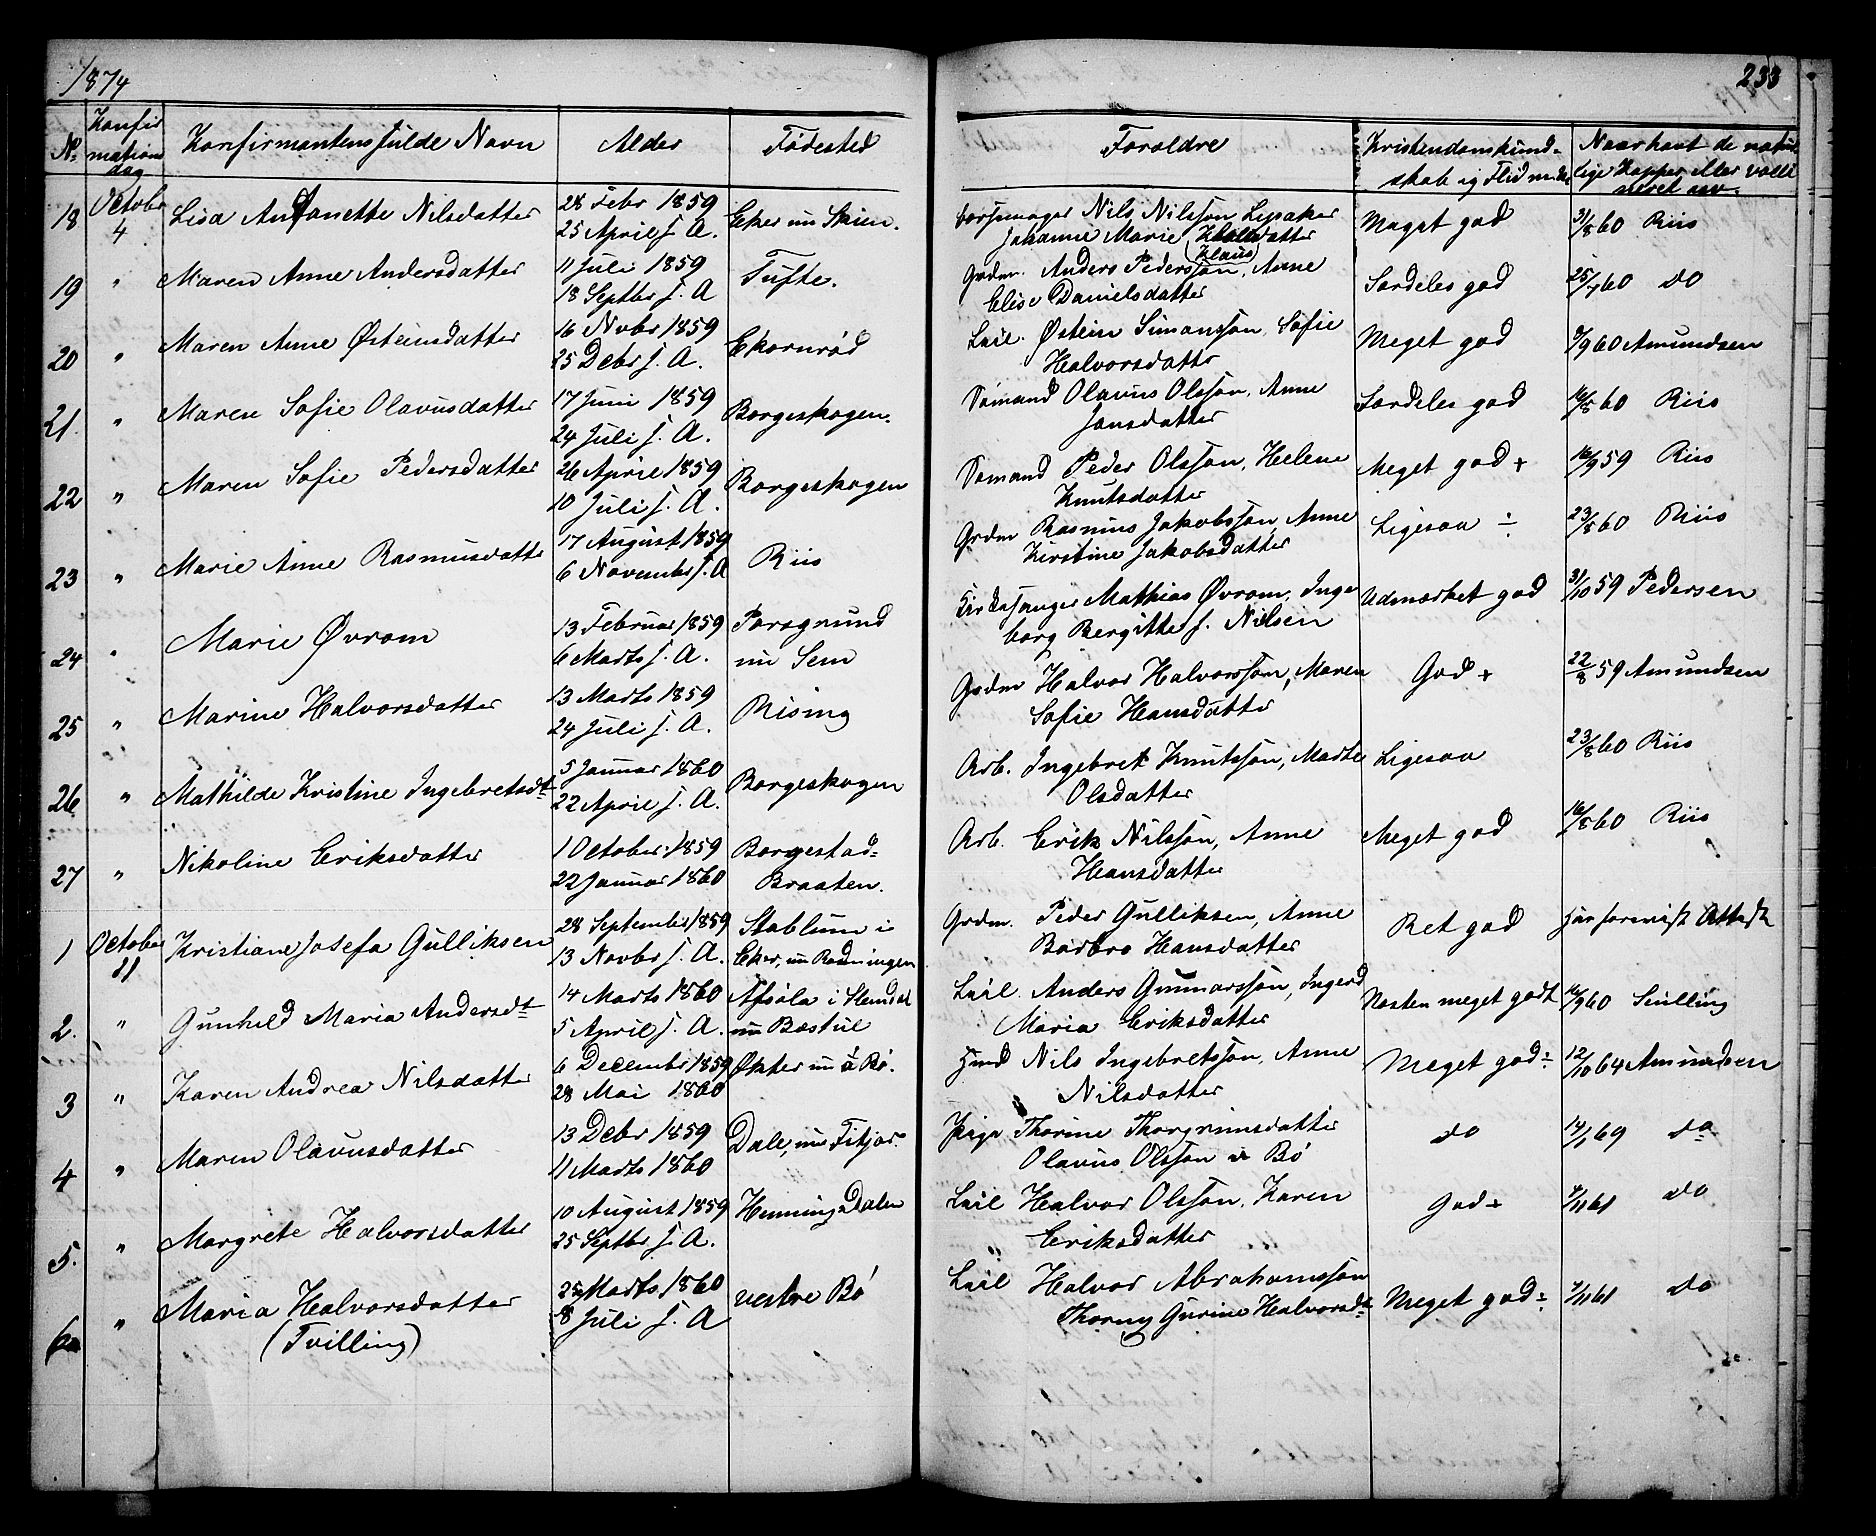 1874
233
No. Konfirmationsdag Konfirmantens fulde Navn Alder Fødested Forældre Kristendomskundskab og Flid Naar havt de naturlige Kopper eller vaccineret
18 Octobr 4 Lisa Antonette Nilsdatter 28 Febr 1859 Eker nu Skien. Nils Nilsson Lysaker Meget god 31/8 60 Riis
25 April s. A. Johanne Marie datter
(Klaus)
19 " Maren Anne Andersdatter 11 Juli 1859 Tufte. Grdm. Anders Pedersson, Anne Særdeles god 25/7 60 do
18 Septbr s. A Elise Danielsdatter
20 " Maren Anne Østeinsdatter 16 Novbr 1859 Ekornrød Leil. Østein Simonsson, Sofie Meget god 9/9 60 Amundsen
25 Debr s. A. Halvorsdatter
21. " Maren Sofie Olavusdatter 17 Juni 1859 Borgeskogen. Sømand Olavus Olsson, Anne Særdeles god 16/8 60 Riis
24 Juli s. A. Jansdatter
22 " Maren Sofie Pedersdatter 26 April 1859 Borgeskogen Sømand Peder Olsson, Helene Meget god + 16/9 59 Riis
10 Juli s. A. Knutsdatter
23 " Marie Anne Rasmusdattr 17 August 1859 Riis Grdm Rasmus Jakobsson, Anne Ligesaa ÷ 23/8 60 Riis
6 Novembr s. A Kirstine Jakobsdatter
24 " Marie Øvrom 13 Februar 1859 Porsgrund Kirkesanger Mathias Øvrom, Inge Udmærket god 31/10 59 Pedersen
6 Marts s. A. nu Sem borg Bergitte f. Nilsen
25 " Marine Halvorsdatter 13 Marts 1859 Rising Grdm Halvor Halvorsson, Maren God + 22/8 59 Amundsen
24 Juli s. A. Sofie Hansdatter
26 " Mathilde Kristine Ingebretsdt 5 Januar 1860 Borgeskogen Arb. Ingebret Knutsson, Marthe Ligesaa 23/8 60 Riis
22 April s. A. Olsdatter
27 " Nikoline Eriksdatter 1 October 1859 Borgestad= Arb. Erik Nilsson, Anne Meget god 16/8 60 Riis
22 Januar 1860 Braaten. Hansdatter
1 October 11 Kristiane Josefa Gulliksen 28 September 1859 Stablum i Grdm. Peder Gulliksen, Anne Ret god har forevist Attest
13 Novbr s. A. Eker, nu Rødningen Barbro Hansdatter
2. " Gunhild Maria Andersdt 14 Marts 1860 i Slemdal Leil. Anders Gunnarsson, Ingerd Næsten meget godt 16/9 60
5 April s. A. nu Bæstul Maria Eriksdatter
3 " Karen Andrea Nilsdatter 6 December 1859 Økter nu i Bø. Nils Ingebretsson, Anne Meget god ÷ 12/10 64 Amundsen
28 Mai 1860 Nilsdatter
4 " Maren Olavusdatter 13 Debr 1859 Dale, nu Fitjar Pige Thorine Thorgrimsdatter do 14/1 69 do
11 Marts 1860 Olavus Olsson i Bø
5. " Margrete Halvorsdatter 10 August 1859 Henningsdalen Leil Halvor Olsson, Karen God + 7/11 61 do
25 Septbr s. A. Eriksdatter
6a " Maria Halvorsdatter 25 Marts 1860 vestre Bø Leil Halvor Abrahamsson Meget god ÷ 7/11 61 do
(Tvilling) 8 Juli s. A Thorny Gurine Halvorsdt